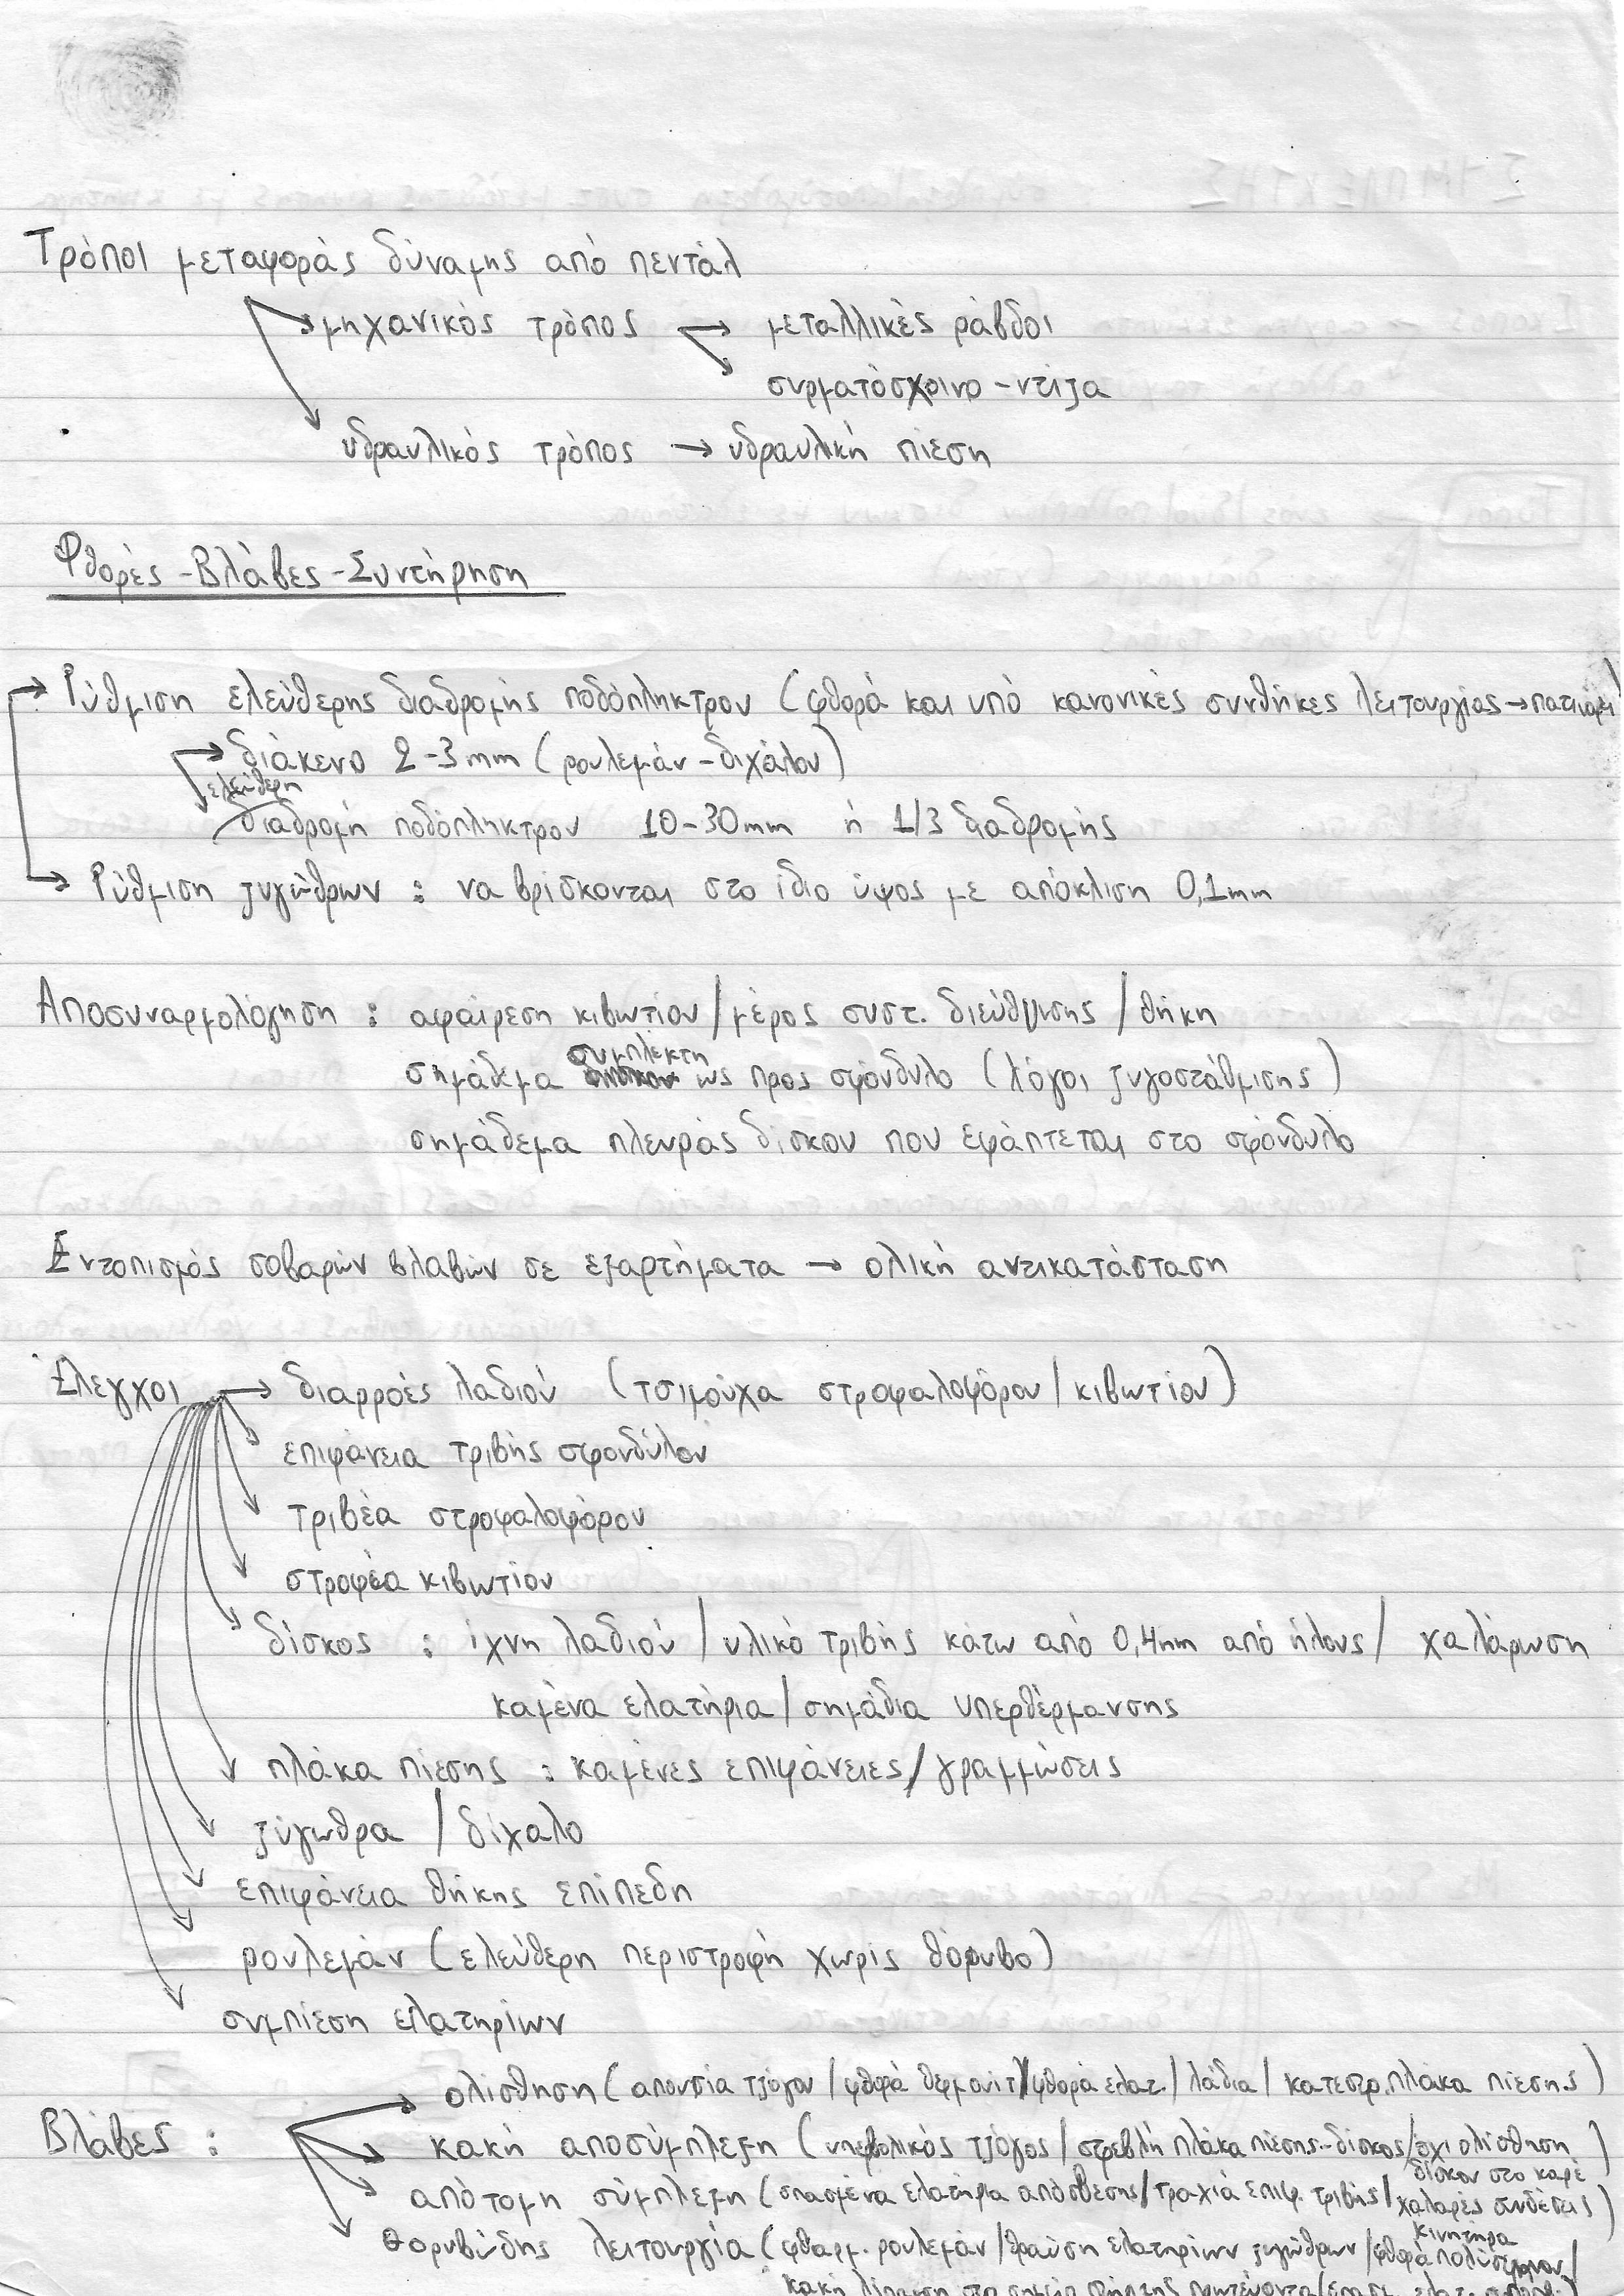 Τρόποι μεταφοράς δύναμης από πεντάλ
μηχανικός τρόπος → μεταλλικές ράβδοι
συρματόσχοινο - ντίζα
υδραυλικός τρόπος → υδραυλική πίεση
Φθορές - Βλάβες - Συντήρηση
Ρύθμιση ελεύθερης διαδρομής ποδόπληκτρου (φθορά και υπό κανονικές συνθήκες λειτουργίας →
διάκενο 2-3mm (ρουλεμάν - διχάλου)
ελεύθερη
διαδρομή ποδόπληκτρου 10-30mm ή 1/3 διαδρομής
Ρύθμιση ζυγώθρων : να βρίσκονται στο ίδιο ύψος με απόκλιση 0,1mm
Αποσυναρμολόγηση : αφαίρεση κιβωτίου / μέρος συστ. διεύθυνσης / θήκη
συμπλέκτη
σημάδεμα ως προς σφόνδυλο (λόγοι ζυγοστάθμισης)
σημάδεμα πλευράς δίσκου που εφάπτεται στο σφόνδυλο
Εντοπισμός σοβαρών βλαβών σε εξαρτήματα → ολική αντικατάσταση
Έλεγχοι → διαρροές λαδιού (τσιμούχα στροφαλοφόρου / κιβωτίου)
επιφάνεια τριβής σφονδύλου
τριβέα στροφαλοφόρου
στροφέα κιβωτίου
δίσκος : ίχνη λαδιού / υλικό τριβής κάτω από 0,4mm από ήλους / χαλάρωση
καμένα ελατήρια / σημάδια υπερθέρμανσης
πλάκα πίεσης : καμένες επιφάνειες / γραμμώσεις
ζύγωθρα / δίχαλο
επιφάνεια θήκης επίπεδη
ρουλεμάν (ελεύθερη περιστροφή χωρίς θόρυβο)
συμπίεση ελατηρίων
ολίσθηση (απουσία τζόγου / φθορά θερμουίτ / φθορά ελατ. / λάδια / κατεστρ. πλάκα πίεσης)
Βλάβες : κακή αποσύμπλεξη (υπερβολικός τζόγος / στρεβλή πλάκα πίεσης - δίσκος / όχι ολίσθηση
δίσκου στο καρέ)
απότομη σύμπλεξη (σπασμένα ελατήρια απόσβεσης / τραχιά επιφ. τριβής / χαλαρές συνδέσεις
κινητήρα)
θορυβώδης λειτουργία (φθαρμ. ρουλεμάν / θραύση ελατηρίων ζυγώθρων / φθορά πολύσφηνου /
κακή λίπανση στο σημείο στήριξης πρωτεύοντα